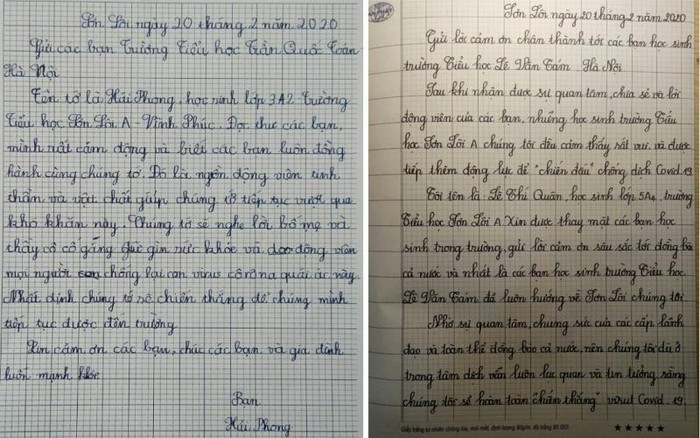 Sơn Lôi ngày 20 tháng 2 năm 2020
Gửi các bạn Trường Tiểu học Trần Quốc Toản
Hà Nội
Tên tớ là Hải Phong, học sinh lớp 3A2 Trường
Tiểu học Sơn Lôi A - Vĩnh Phúc. Đọc thư các bạn,
mình rất cảm động và biết các bạn luôn đồng
hành cùng chúng tớ. Đó là nguồn động viên tinh
thần và vật chất giúp chúng tớ tiếp tục vượt qua
khó khăn này. Chúng tớ sẽ nghe lời bố mẹ và
thầy cô cố gắng giữ gìn sức khỏe và động viên
mọi người chống lại con virus côrôna quái ác này.
Nhất định chúng tớ sẽ chiến thắng để chúng mình
tiếp tục được đến trường.
Xin cảm ơn các bạn, chúc các bạn và gia đình
luôn mạnh khỏe
Bạn
Hải Phong
Sơn Lôi ngày 20 tháng 2 năm 2020
Gửi lời cảm ơn chân thành tới các bạn học sinh
trường Tiểu học Lê Văn Tám Hà Nội
Sau khi nhận được sự quan tâm, chia sẻ và lời
động viên của các bạn, những học sinh trường Tiểu
học Sơn Lôi A chúng tôi đều cảm thấy rất vui và được
tiếp thêm động lực để "chiến đấu" chống dịch Covid.19
Tôi tên là : Lê Thị Quân, học sinh lớp 5A4, trường
Tiểu học Sơn Lôi A. Xin được thay mặt các bạn học
sinh trong trường, gửi lời cảm ơn sâu sắc tới đồng bào
cả nước và nhất là các bạn học sinh trường Tiểu học
Lê Văn Tám đã luôn hướng về Sơn Lôi chúng tôi
Nhờ sự quan tâm, chung sức của các cấp lãnh
đạo và toàn thể đồng bào cả nước, nên chúng tôi dù ở
trong tâm dịch vẫn luôn lạc quan và tin tưởng rằng
chúng tôi sẽ hoàn toàn "chiến thắng" virut Covid.19
★★★★★